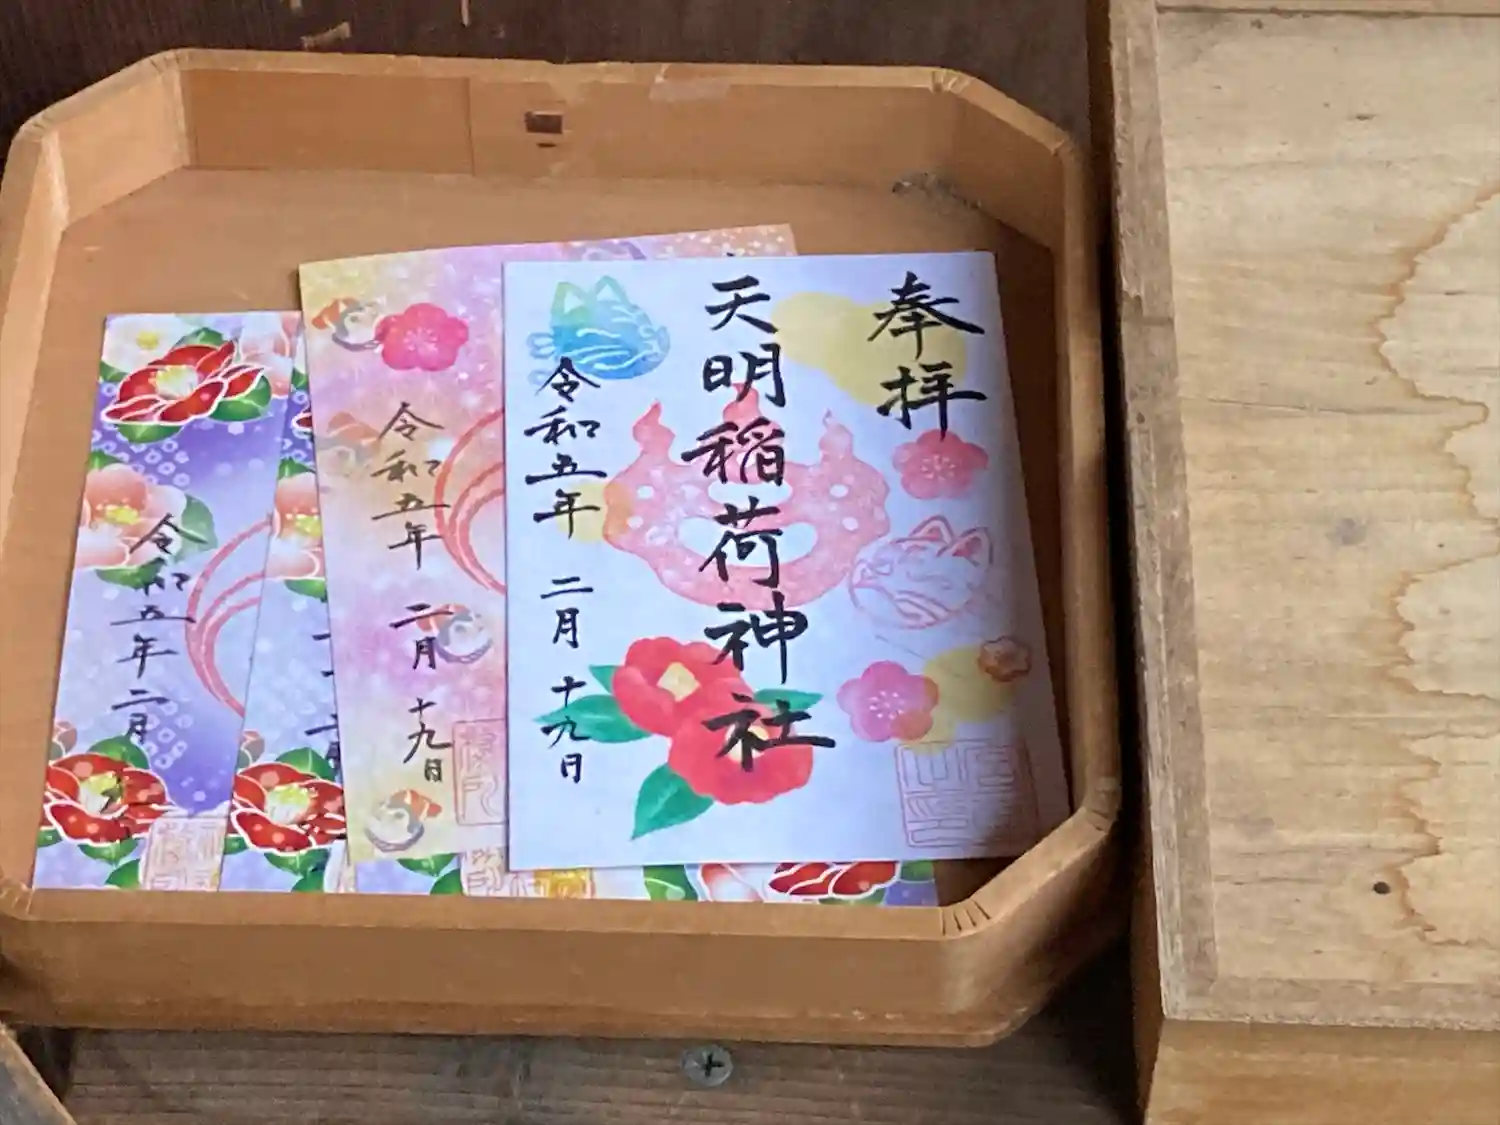 奉拝
天明稲荷神社
令和五年 二月 十九日
令和五年 二月 十九日
令和五年 二月